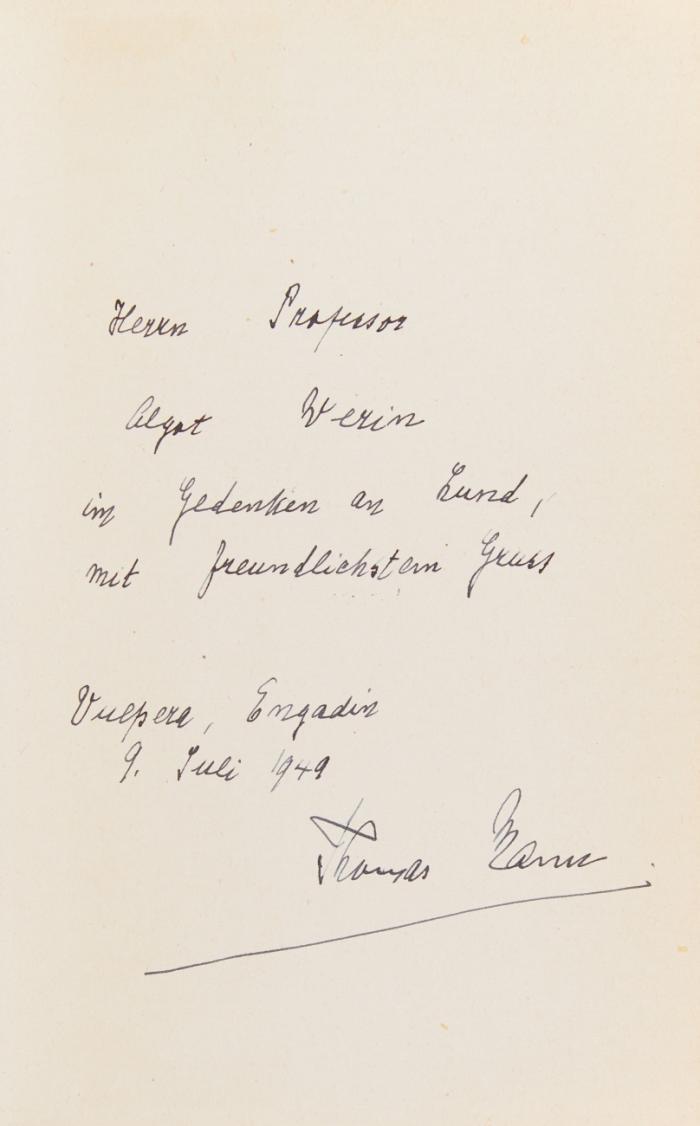 Herrn Professor
Algot Werin
im Gedenken an Lund,
mit freundlichstem Gruss
Vulpera, Engadin
9. Juli 1949
Thomas Mann